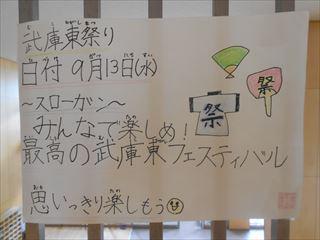 武庫東祭り
日付 9月13日(水)
～スローガン～
みんなで楽しめ!
最高の武庫東フェスティバル
思いっきり楽しもう
祭
祭